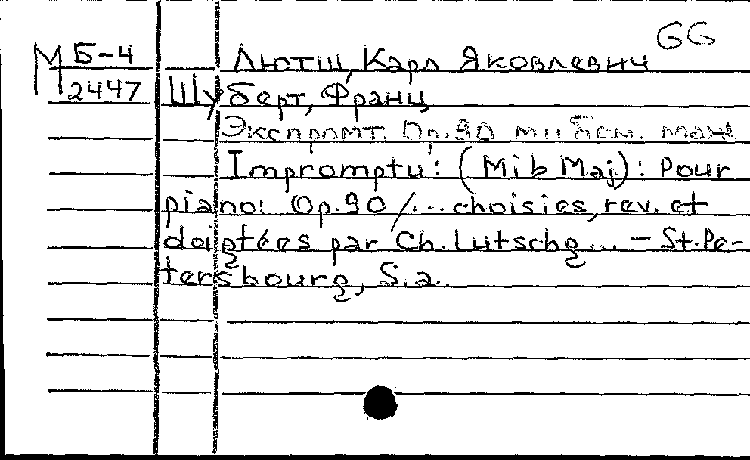 GG
М Б-4 Лютш, Карл Яковлевич
2447 Шуберт, Франц
Экспромт. Op.90 ми бем. маж
Impromptu: (Mi b Maj): Pour
piano: Op.90 /... choisies, rev. et
doigtées par Ch. Lutschg... - St.Pe-
tersbourg, S.a.